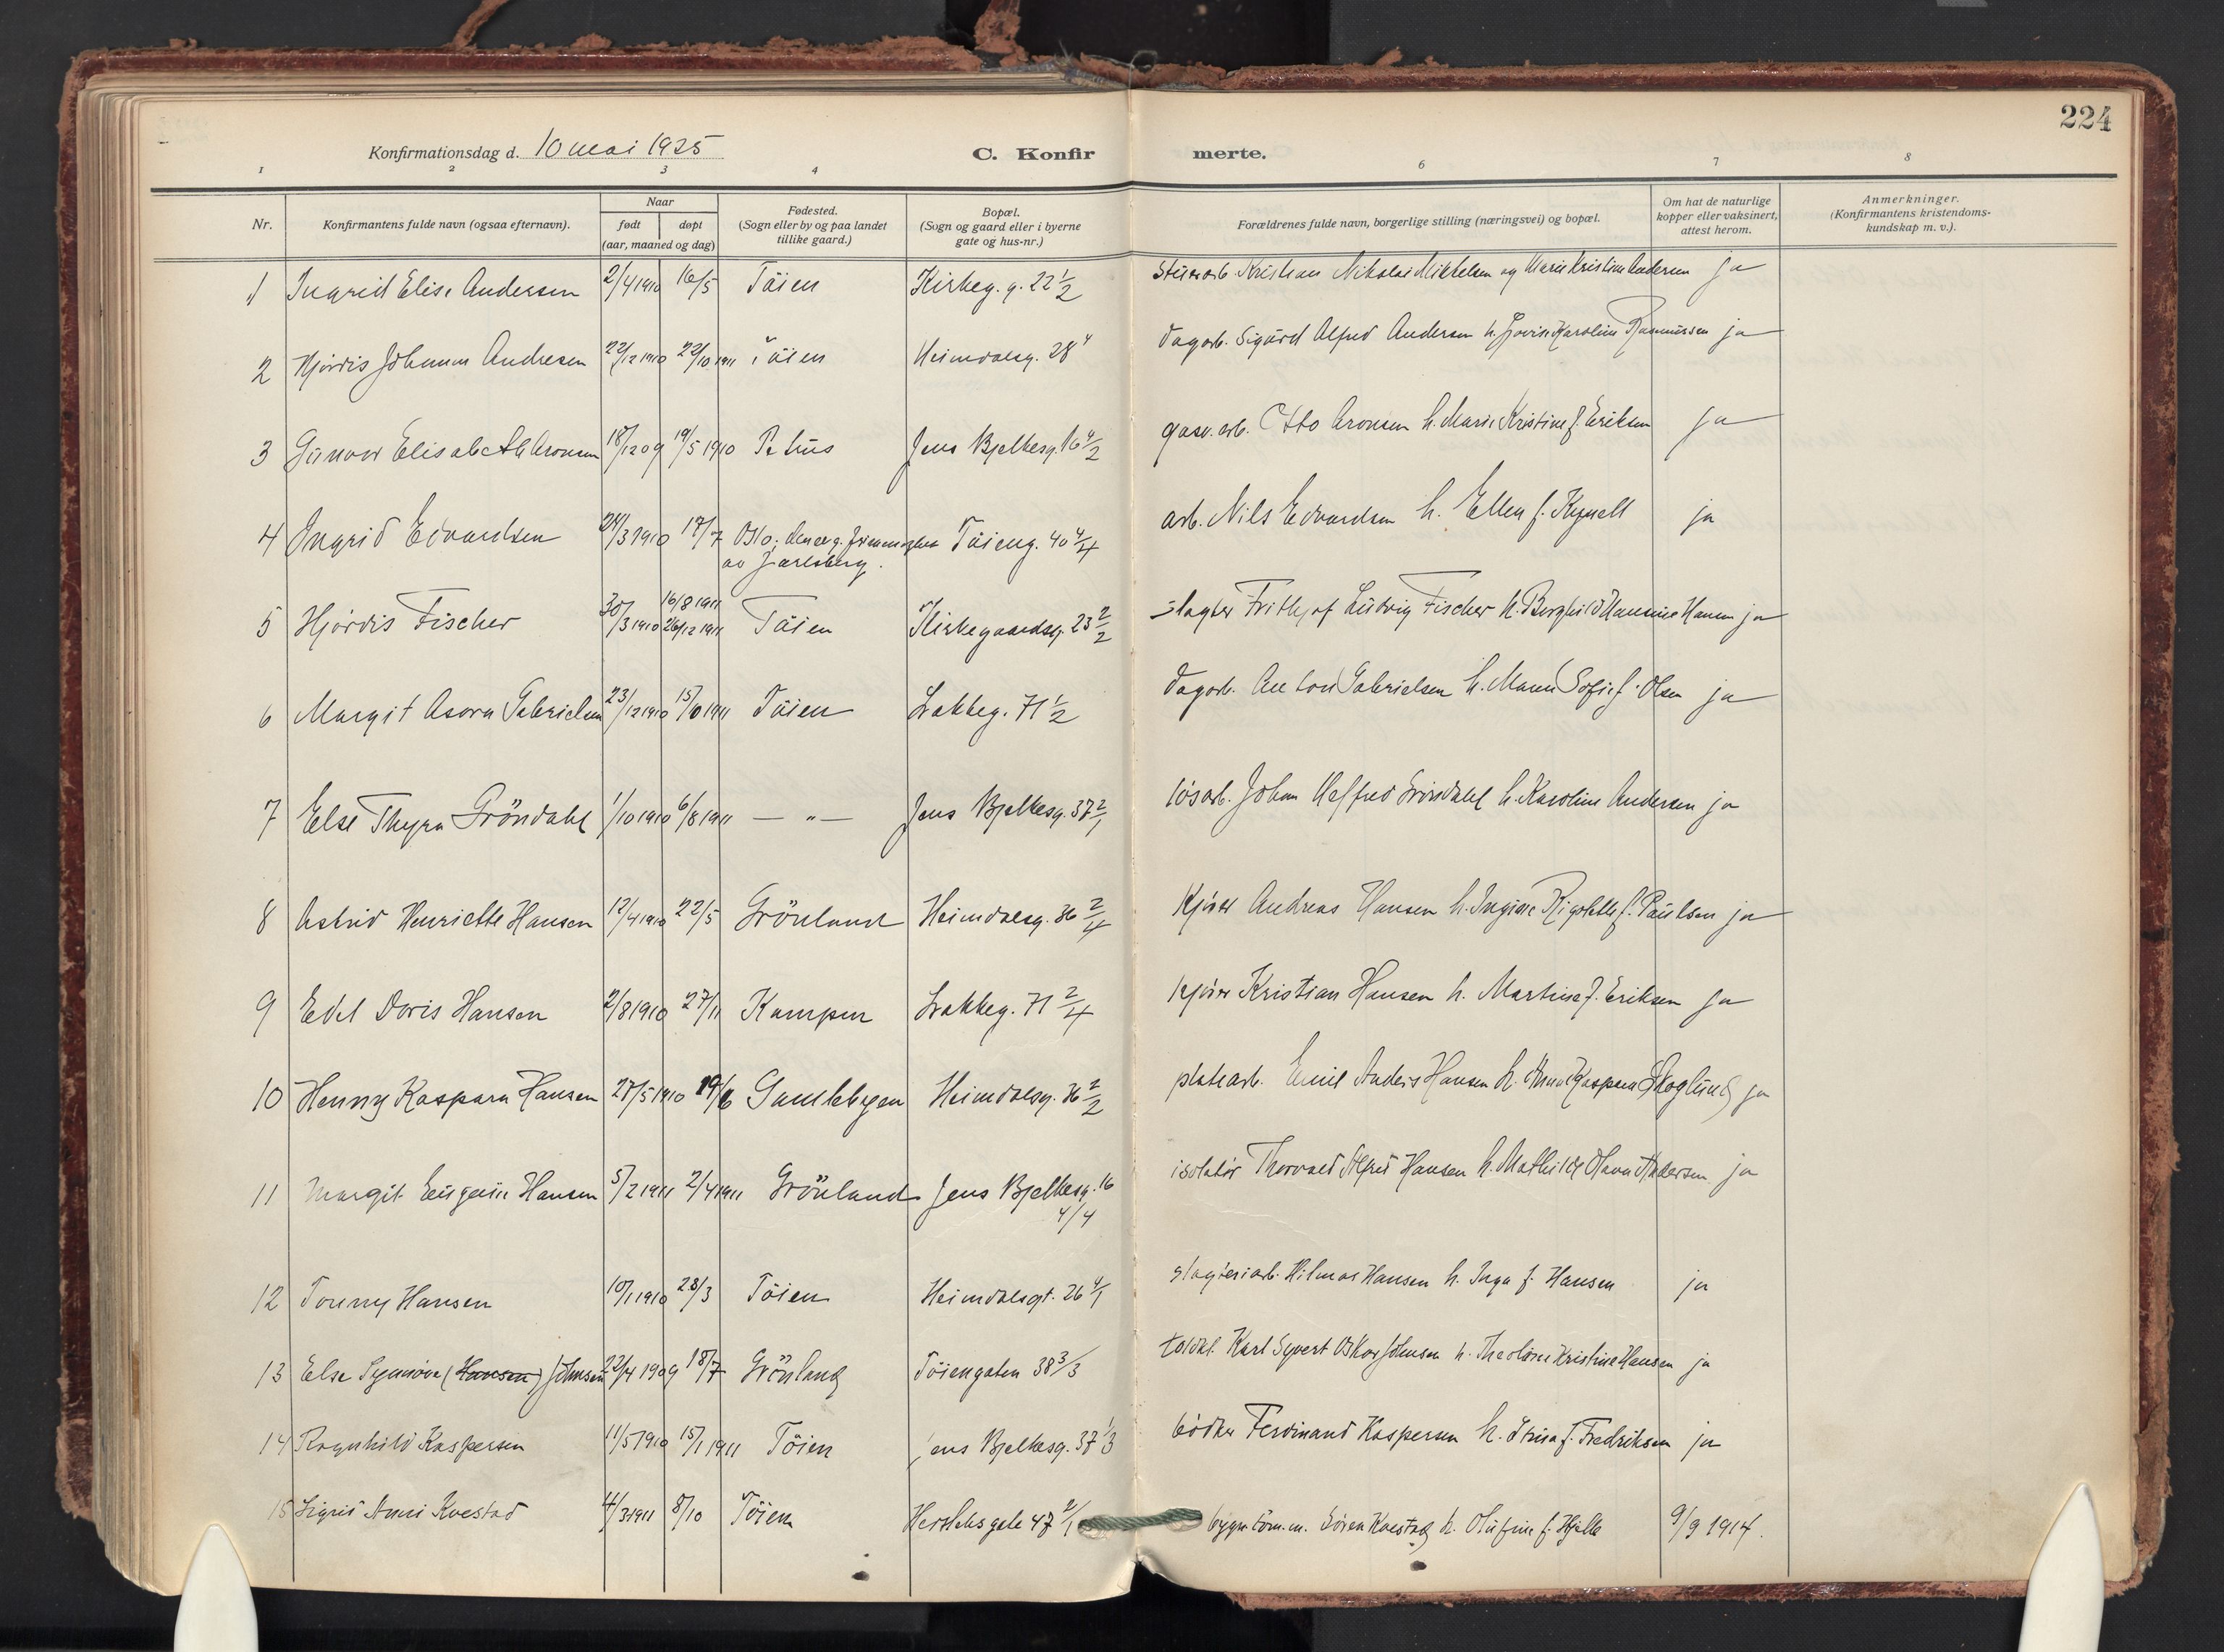 224
Konfirmationsdag d. 10 mai 1925 C. Konfirmerte.
1 2 3 4 6 7 8
Nr. Konfirmantens fulde navn (ogsaa efternavn). Naar født døpt (aar, maaned og dag) Fødested. (Sogn eller by og paa landet tillike gaard.) Bopæl. (Sogn og gaard eller i byerne gate og hus-nr.) Forældrenes fulde navn, borgerlige stilling (næringsvei) og bopæl. Om hat de naturlige kopper eller vaksinert, attest herom. Anmerkninger. (Konfirmantens kristendoms-kundskap m. v.).
1 Ingrid Elise Andersen 2/4 1910 16/5 Töien Kirkeg. g. 22 1/2 Kristian Nikolai Mikkelsen og Marie Kristine Andersen ja
2 Hjördis Johanne Andresen 22/12 1910 22/10 1911 Töien Heimdalsg. 28 4 dagarb. Sigurd Alfred Andersen h. Karoline Rasmussen ja
3 Gunvor Elisabeth Aronsen 18/12 09 19/5 1910 Petrus Jens Bjelkesg. 16 4/2 gasv. arb. Otto Aronsen h. Marie Kristine f. Eriksen ja
4 Ingrid Edvardsen 24/3 1910 17/7 Oslo, den ev. g. frimenighet av Jarlsberg. Töieng. 40 4/4 arb. Nils Edvardsen h. Ellen f. Kynell ja
5 Hjördis Fischer 30/3 1910 16/8 1911 26/12 1911 Töien Kirkegaardsg. 23 2/2 slagter Frithjof Ludvig Fischer h. Borghild Hansine Hansen ja
6 Margit Asora Gabrielsen 23/12 1910 15/10 1911 Töien Lakkeg. 71 1/2 dagarb. Anton Gabrielsen h. Maren Sofie f. Olsen ja
7 Else Thyra Gröndahl 1/10 1910 6/8 1911 — " — Jens Bjelkesg. 37 2/1 lösarb. Johan Gröndahl h. Karoline Andersen ja
8 Astrid Henriette Hansen 12/4 1910 22/5 Grönland Heimdalsg. 36 2/4 Kjörer Andreas Hansen h. f. Paulsen ja
9 Edel Doris Hansen 2/8 1910 27/11 Kampen Lakkeg. 71 2/4 kjörer Kristian Hansen h. Martine f. Eriksen ja
10 Henny Kaspara Hansen 27/5 1910 19/6 Gamlebyen Heimdalsg. 36 2/2 platearb. Emil Anders Hansen h. Anna Kaspara Skoglund ja
11 Margit Eugenie Hansen 5/2 1911 2/4 1911 Grönland Jens Bjelkesg. 16 4/4 isolatör Thorvald Alfred Hansen h. Mathilde Olava Andersen ja
12 Tonny Hansen 10/1 1910 28/3 Töien Heimdalsgt. 26 4/1 slagteriarb. Hilmar Hansen h. Inga f. Hansen ja
13 Else Synnöve (Hansen) Johnsen 22/4 1909 18/7 Grönland Töiengaten 38 3/3 Karl Syvert Oskar Johnsen h. Kristine Hansen ja
14 Ragnhild Kaspersen 11/5 1910 15/1 1911 Töien Jens Bjelkesg. 37 1/3 bödker Ferdinand Kaspersen h. f. Fredriksen ja
15 Sigrid Anni Kvestad 4/3 1911 8/10 Töien Herslebsgate 47 2/1 Sören Kvestad h. Olufine f. Hjelle 9/9 1914.